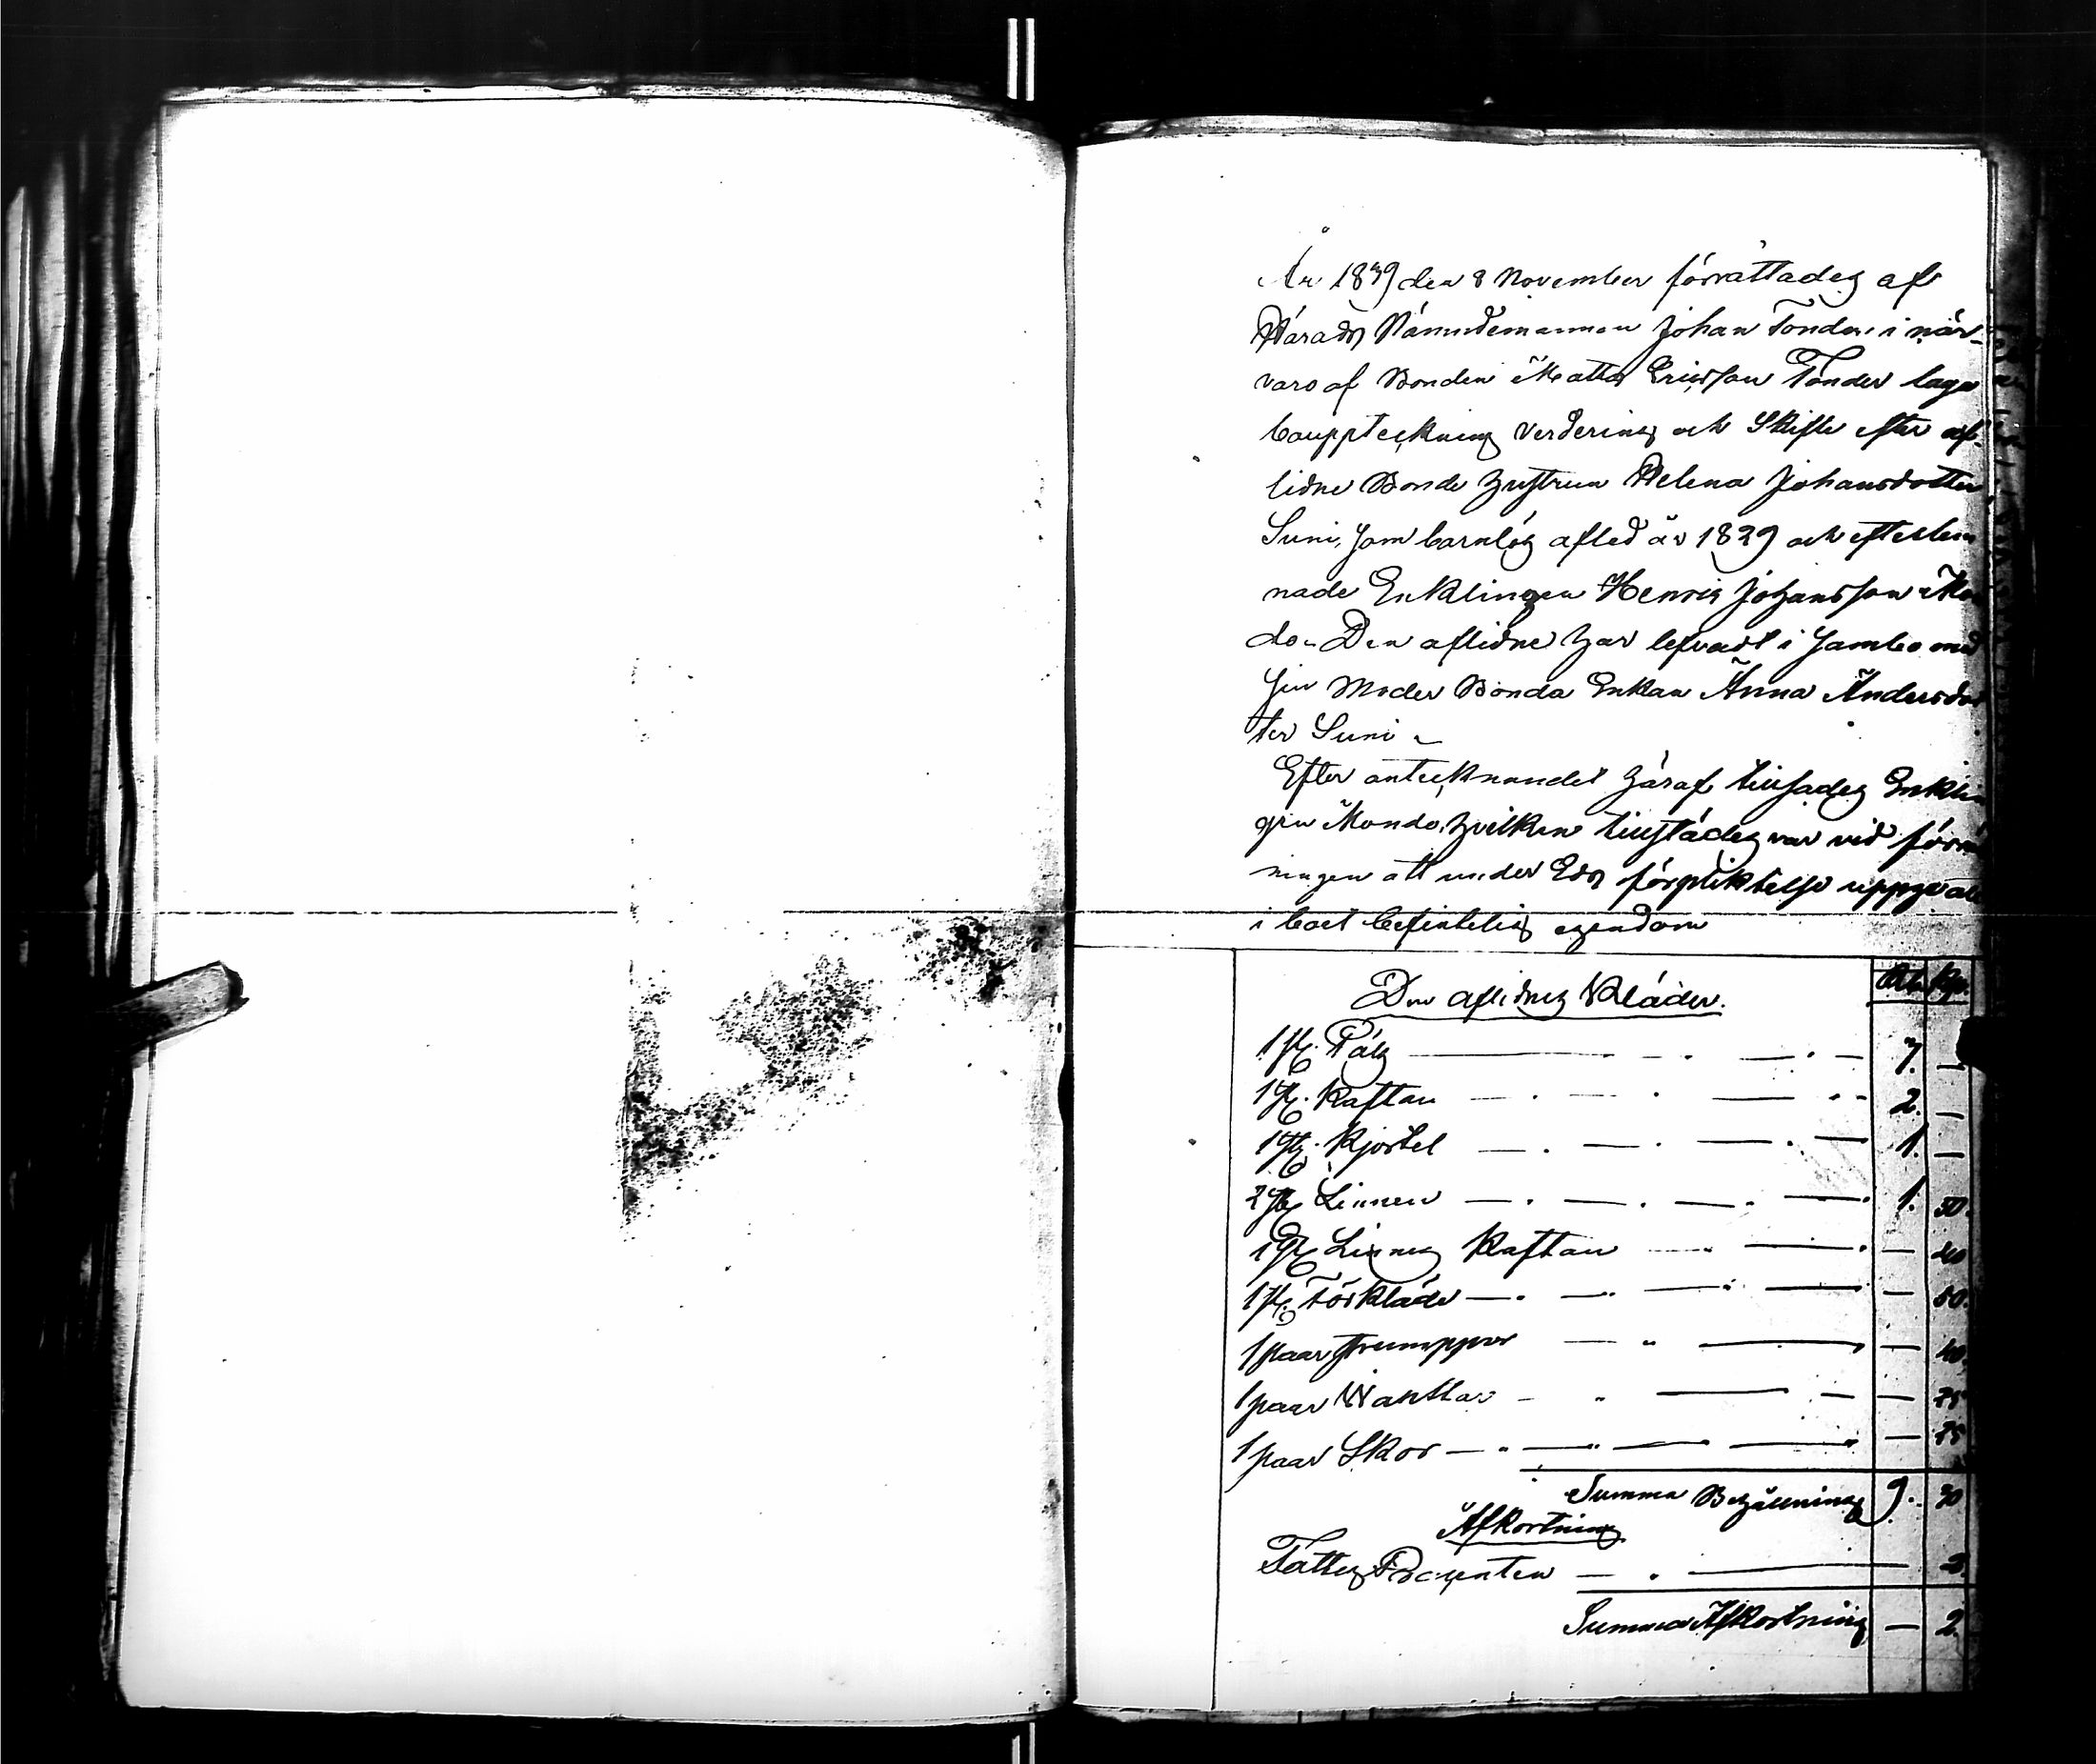 År 1839 den 8 November förrättades af
Härads Nämndemannen Johan Tonder i när-
varo af Bonden Matts Ericsson Tonder laga
bouppteckning verdering och Skifte efter af-
lidne Bonde hustrun Helena Johansdotter
Suni, som barnlös afled år 1829 och efterlem
nade Enklingen Henric Johansson Man
do. Den aflidne har lefvadt i sambo med
sin Moder Bonda Enkan Anna Andersdot
ter Suni
Efter antecknandet häraf tillsades Enklin
gen Mando, hvilken tillstädes var vid förrätt
ningen att under Eds förpliktelse uppge all
i boet befintelig egendom
Rub. Kop.
Den aflidnes Kläder.
1 st. Päls 7. —
1 st. Kaftan 2. —
1 st. Kjortel 1. —
2 st. Linnen 1. 50.
1 st. Linnes Kaftan — 40
1 st. Förkläde — 50.
1 paar strumppor — 40.
1 paar Wanttar — 25
1 paar Skor — 75
Summa Behållning 9. 70
Afkortning
Fattig Procenten 2.
Summa Afkortning — 2.